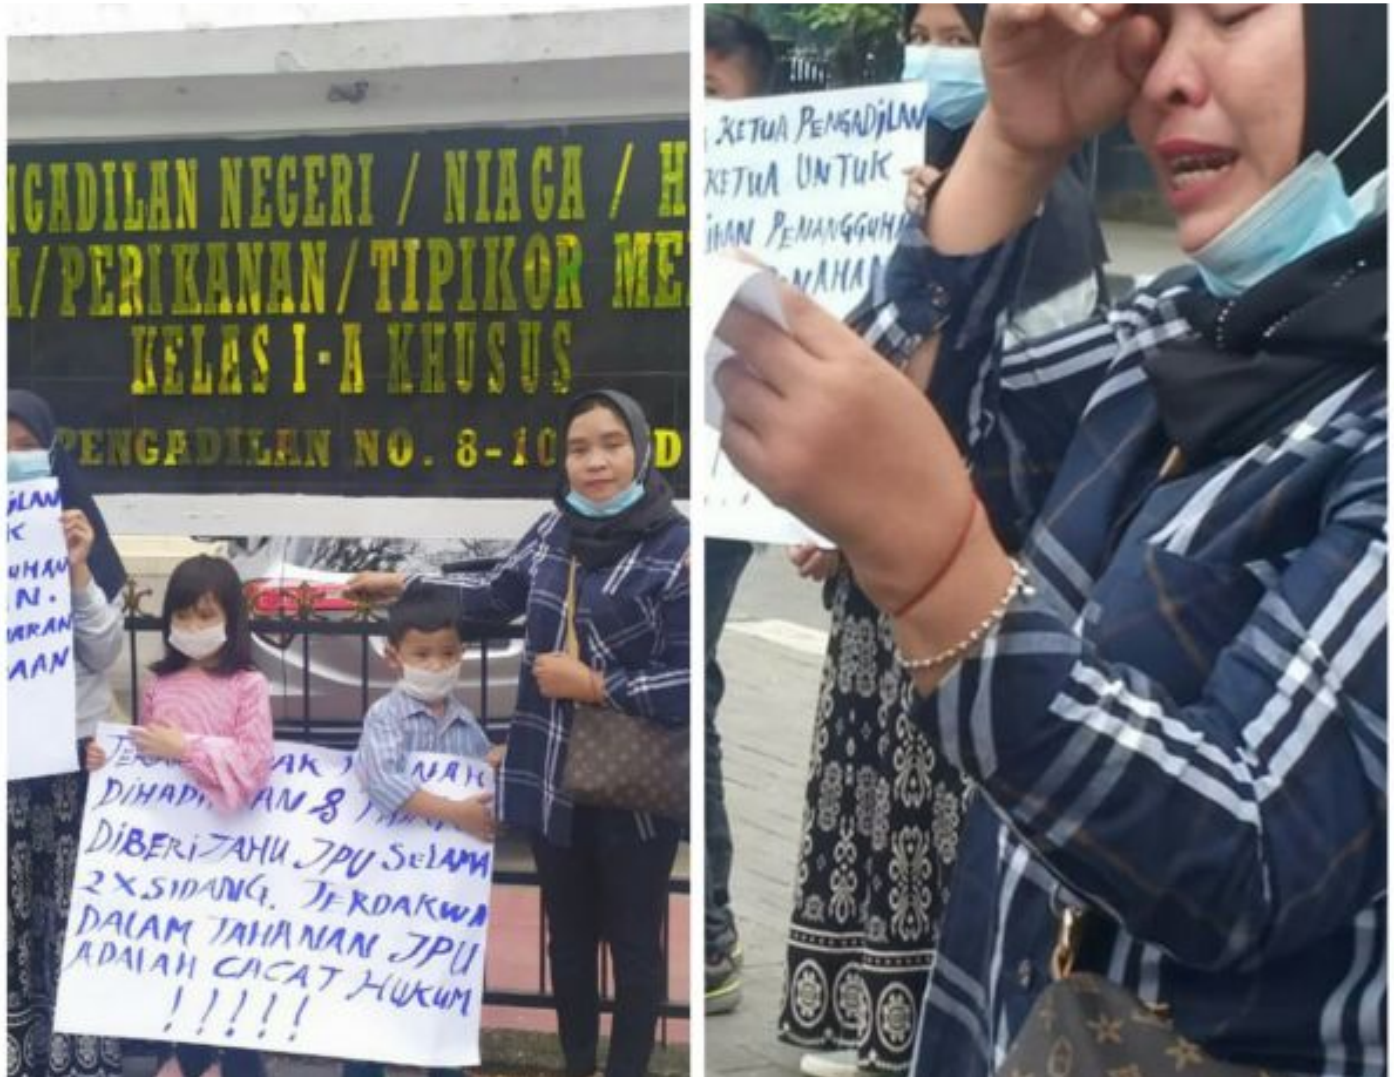 NGADILAN NEGERI / NIAGA / H
/PERIKANAN/TIPIKOR ME
KELAS I-A KHUSUS
PENGADILAN NO. 8-10
iLAN
K
UHAN
N.
ARAN
AAN
AK NAH
DiHADI AN &
DiBERiTAHU JPU SELAMA
2X SIDANG. TERDAKWA
DALAM TAHANAN JPU
ADALAH CACAT HUKUM
!!!!!
KETUA PENGADiLAN
KETUA UNTUK
iHAN PENANGGUHA
NAHAN